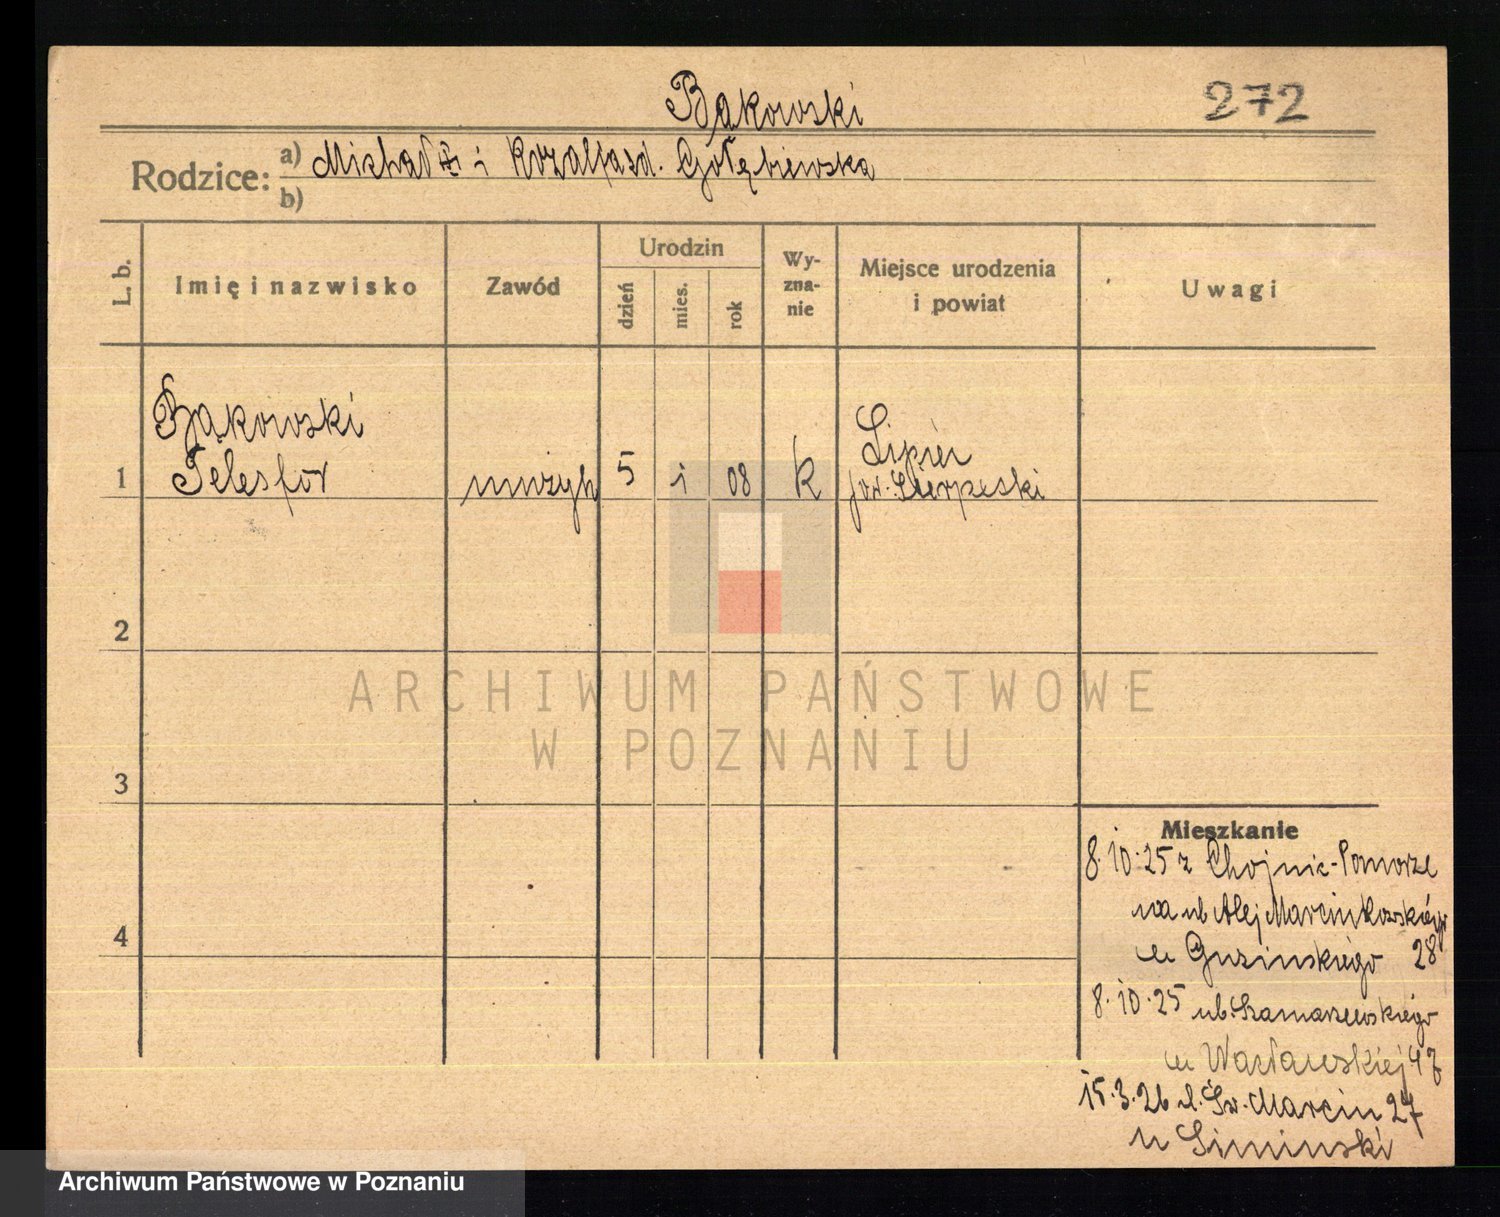 Bąkowski
272
Rodzice:
a) Michał i Rozalja zd. Gołębiewska
b)
L. b.
Imię i nazwisko
Zawód
Urodzin
dzień
mies.
rok
Wy-
zna-
nie
Miejsce urodzenia
i powiat
Uwagi
Bąkowski
1 Telesfor
muzyk
5
1
08
k
Lipier
pow. Sierpecki
2
ARCHIWUM PAŃSTWOWE
W POZNANIU
3
Mieszkanie
8.10.25 z Chojnic-Pomorze
na ul Alej Marcinkowskiego
u 28
4
8.10.25 ul. Szamarzewskiego
u Wacławskiej 47
15.3.26 Św. Marcin 27
u Simiński
Archiwum Państwowe w Poznaniu